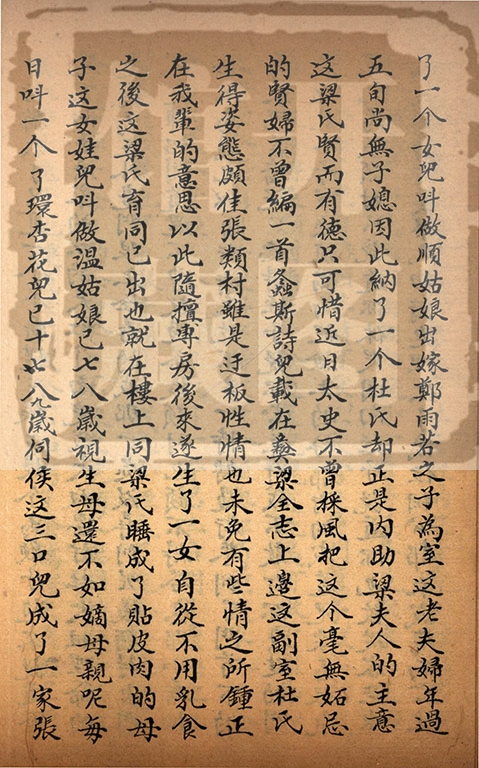 了一个女兒呌做順姑娘出嫁鄭雨若之子為室這老夫婦年過
五旬尚無子媳因此納了一个杜氏却正是内助梁夫人的主意
這梁氏賢而有德只可惜近日太史不曾採風把這个毫無妬忌
的賢婦不曾編一首螽斯詩兒載在彝梁全志上邊這副室杜氏
生得姿態頗佳張類村雖是迂板性情也未免有些情之所鍾正
在我輩的意思以此隨擅專房後來遂生了一女自從不用乳食
之後這梁氏育同已出也就在樓上同梁氏睡成了貼皮肉的母
子這女娃兒呌做溫姑娘已七八歲視生母還不如嫡母親呢每
日呌一个丫環杏花兒已十七八九歲伺侯這三口兒成了一家張